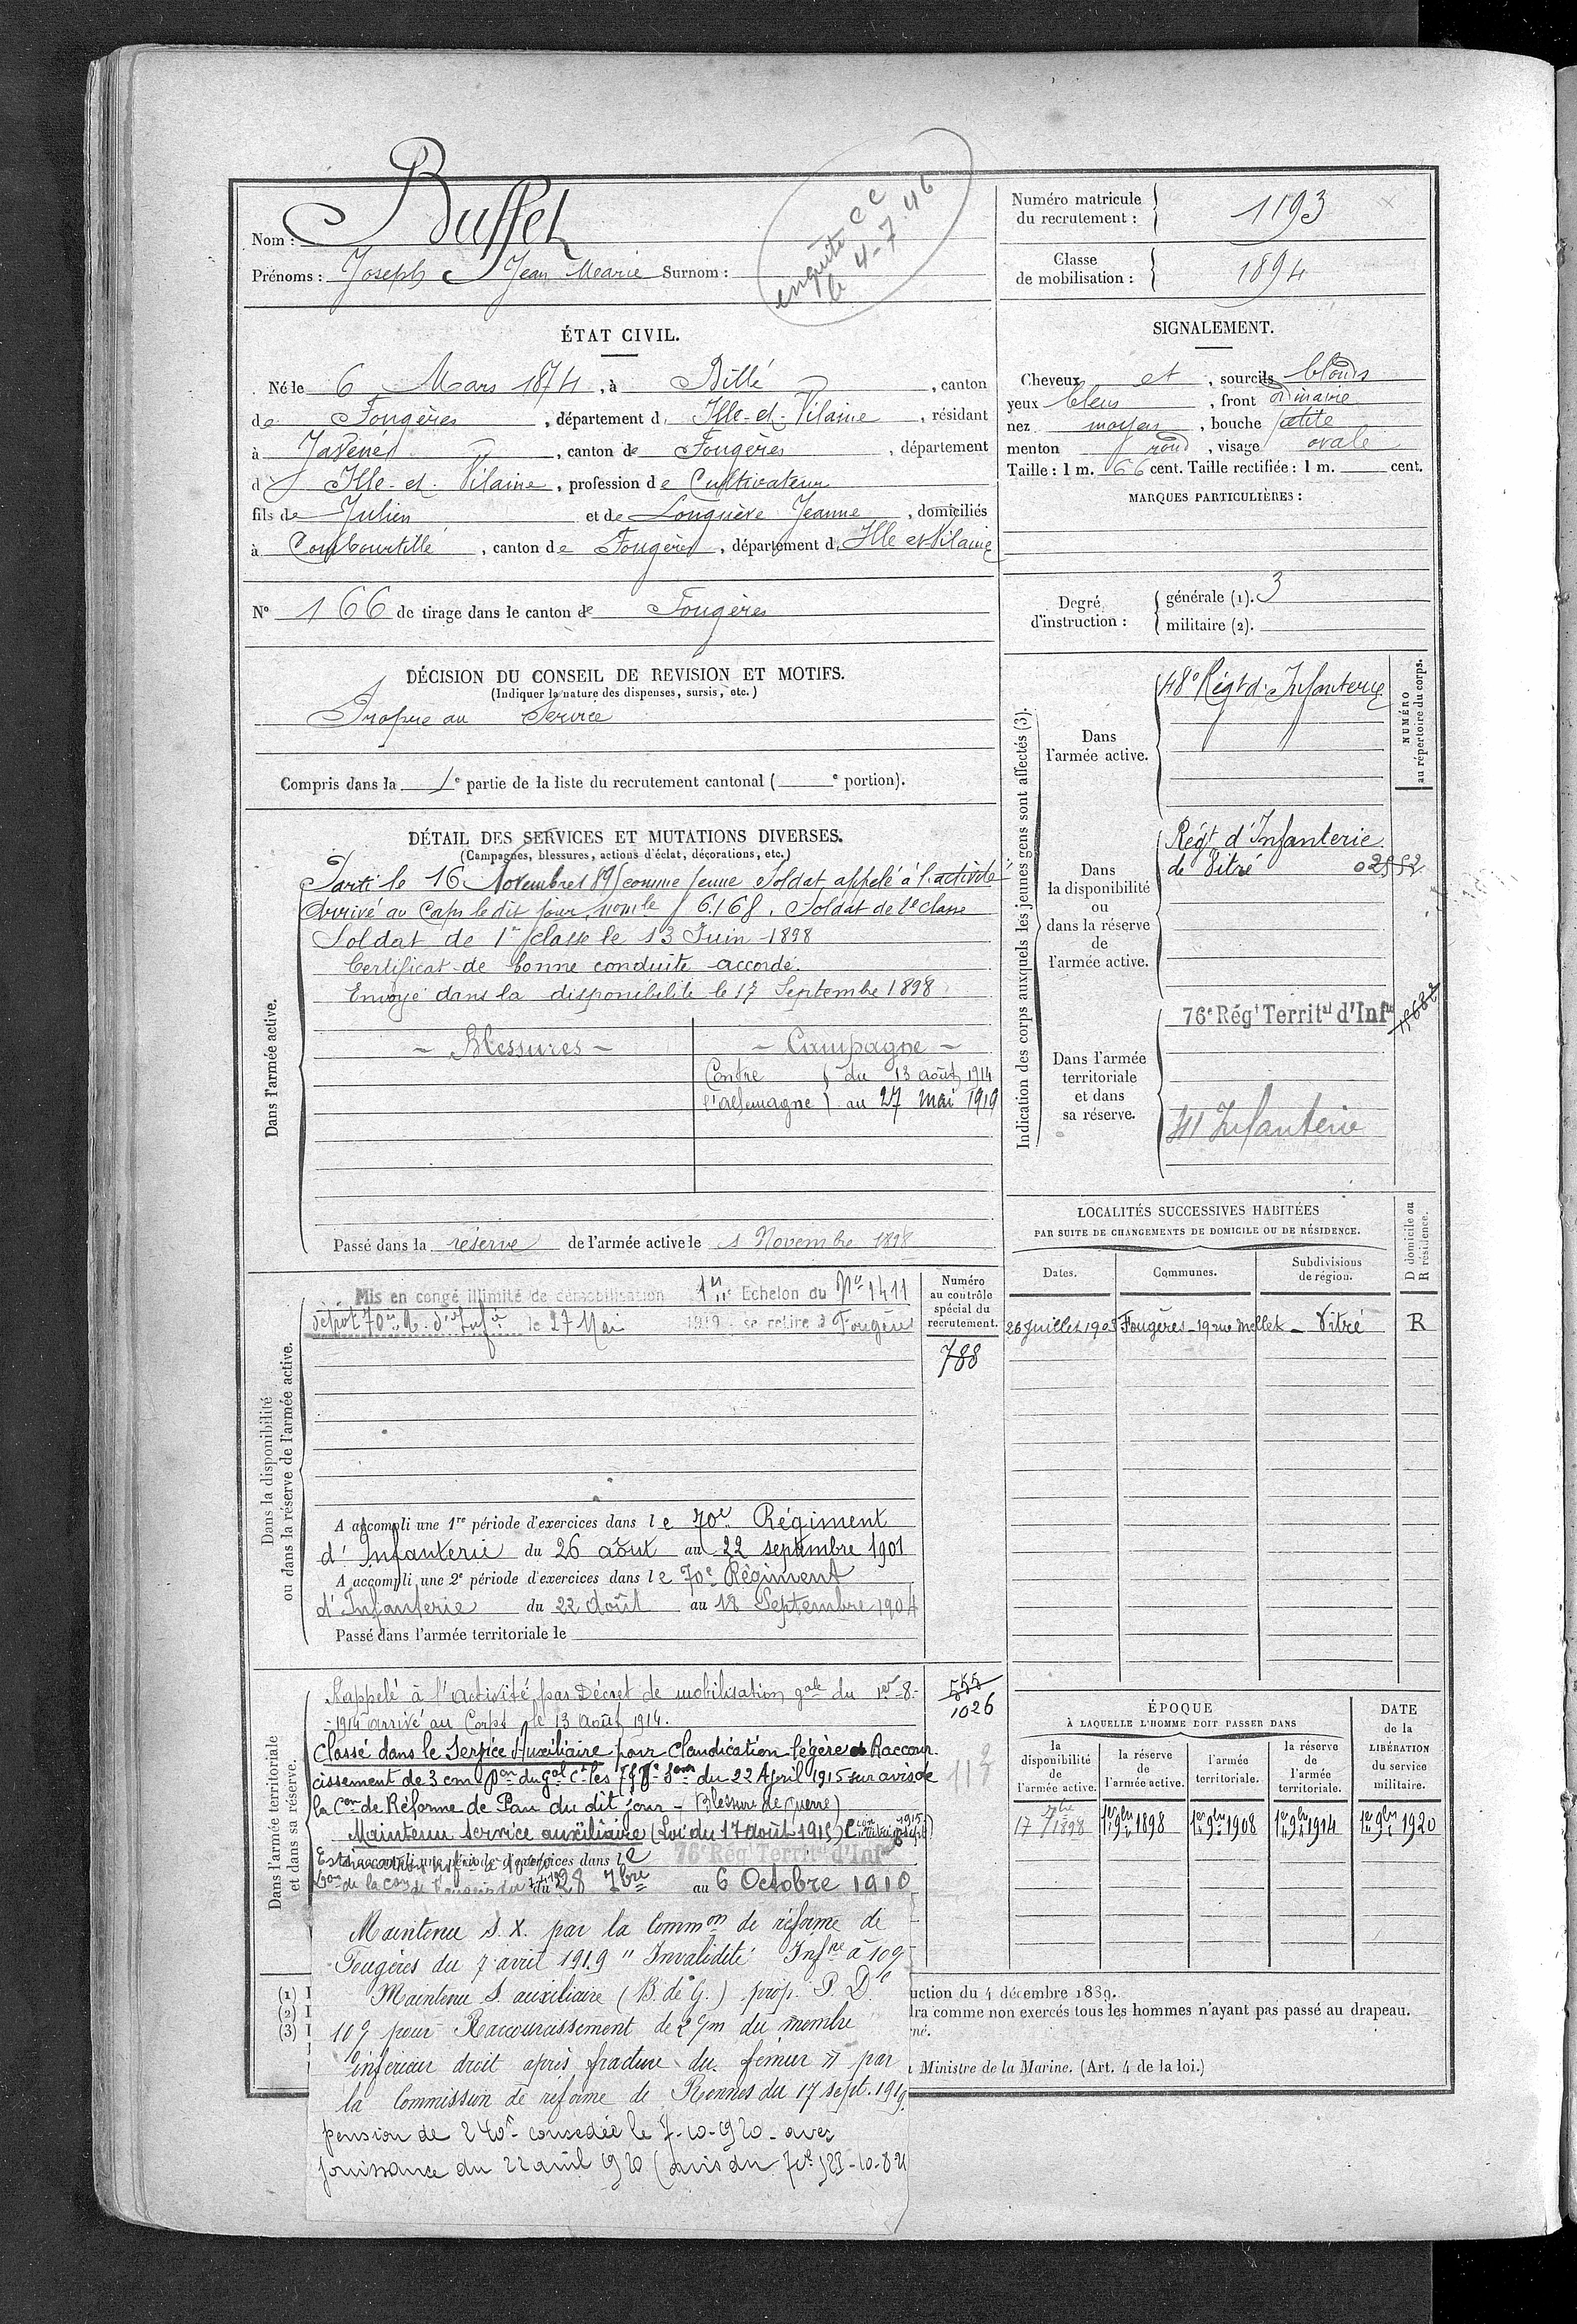 Nom : Buffet
Prénoms : Joseph Jean Marie Surnom :
enquête CC
le 4-7-46
Numéro matricule du recrutement : 1193
Classe de mobilisation : 1894
ÉTAT CIVIL.
Né le 6 Mars 1874, à Billé, canton
de Fougères, département d. Ille-et-Vilaine, résidant
à Javené, canton de Fougères, département
d' Ille-et-Vilaine, profession de Cultivateur
fils de Julien et de Longuève Jeanne, domiciliés
à Combourtillé, canton de Fougères, département d. Ille et Vilaine
N° 166 de tirage dans le canton de Fougères
SIGNALEMENT.
Cheveux et, sourcils blonds
yeux bleus, front ordinaire
nez moyen, bouche petite
menton rond, visage ovale
Taille : 1 m. 66 cent. Taille rectifiée : 1 m. cent.
MARQUES PARTICULIÈRES :
Degré d'instruction : générale (1). 3
militaire (2).
DÉCISION DU CONSEIL DE REVISION ET MOTIFS.
(Indiquer la nature des dispenses, sursis, etc.)
Propre au Service
Compris dans la 1e partie de la liste du recrutement cantonal ( e portion).
DÉTAIL DES SERVICES ET MUTATIONS DIVERSES.
(Campagnes, blessures, actions d'éclat, décorations, etc.)
Dans l'armée active.
Parti le 16 Novembre 1895 comme jeune Soldat appelé à l'activité
Arrivé au Corps le dit jour, nom le 6.168. Soldat de 2e classe
Soldat de 1re classe le 13 Juin 1898
Certificat de bonne conduite accordé.
Envoyé dans la disponibilité le 17 Septembre 1898
- Blessures -
- Campagne -
Contre l'allemagne du 13 août 1914
au 27 mai 1919
Passé dans la réserve de l'armée active le 1 Novembre 1898
Indication des corps auxquels les jeunes gens sont affectés (3).
NUMÉRO au répertoire du corps.
Dans l'armée active.
48e Régt d'Infanterie
Dans la disponibilité ou dans la réserve de l'armée active.
Régt d'Infanterie
de Vitré 02552
Dans l'armée territoriale et dans sa réserve.
76e Régt Territal d'Infie
41 Infanterie
LOCALITÉS SUCCESSIVES HABITÉES
PAR SUITE DE CHANGEMENTS DE DOMICILE OU DE RÉSIDENCE.
D domicile ou R résidence.
Dates. Communes. Subdivisions de région.
Fougères - 19 rue Mellet - Vitré R
Dans la disponibilité ou dans la réserve de l'armée active.
Numéro au contrôle spécial du recrutement.
788
Mis en congé illimité de démobilisation 1er Echelon du No 1411
dépôt 70e R. d'Infie le 27 Mai 1919 - se retire à Fougères
A accompli une 1re période d'exercices dans le 70e Régiment
d'Infanterie du 26 août au 22 septembre 1901
A accompli une 2e période d'exercices dans le 70e Régiment
d'Infanterie du 22 Août au 18 Septembre 1904
Passé dans l'armée territoriale le
Dans l'armée territoriale et dans sa réserve.
555
1026
Rappelé à l'activité par Décret de mobilisation gale du 1er 8-
-1914 arrivé au Corps le 13 août 1914.
Classé dans le Service Auxiliaire pour Claudication légère et Raccour-
cissement de 3 cm du 22 Avril 1915 sur avis de
la Con de Réforme de Pau du dit jour - (Blessure de Guerre)
Maintenu service auxiliaire (Loi du 17 août 1915)
A accompli une période d'exercices dans le 76e Rég Territal d'Infie
du 28 7bre au 6 Octobre 1910
Maintenu S. X. par la Common de réforme de
Fougères du 7 avril 1919 "Invalidité Infre à 10%
Maintenu S. auxiliaire (B. de G.) prop. P. De
10% pour Raccourcissement de 2 c/m du membre
inférieur droit après fracture du fémur" par
la Commission de réforme de Rennes du 17 sept. 1919.
pension de 240f concédée le 7-10-1920 - avec
jouissance du 22 avril 1920
ÉPOQUE
À LAQUELLE L'HOMME DOIT PASSER DANS
la disponibilité de l'armée active.
la réserve de l'armée active.
l'armée territoriale.
la réserve de l'armée territoriale.
DATE de la LIBÉRATION du service militaire.
17 7bre 1898
1er 9bre 1898
1er 9bre 1908
1er 9bre 1914
1er 9bre 1920
(1) I
(2) I
(3) I
uction du 4 décembre 1889.
dra comme non exercés tous les hommes n'ayant pas passé au drapeau.
né.
Ministre de la Marine. (Art. 4 de la loi.)